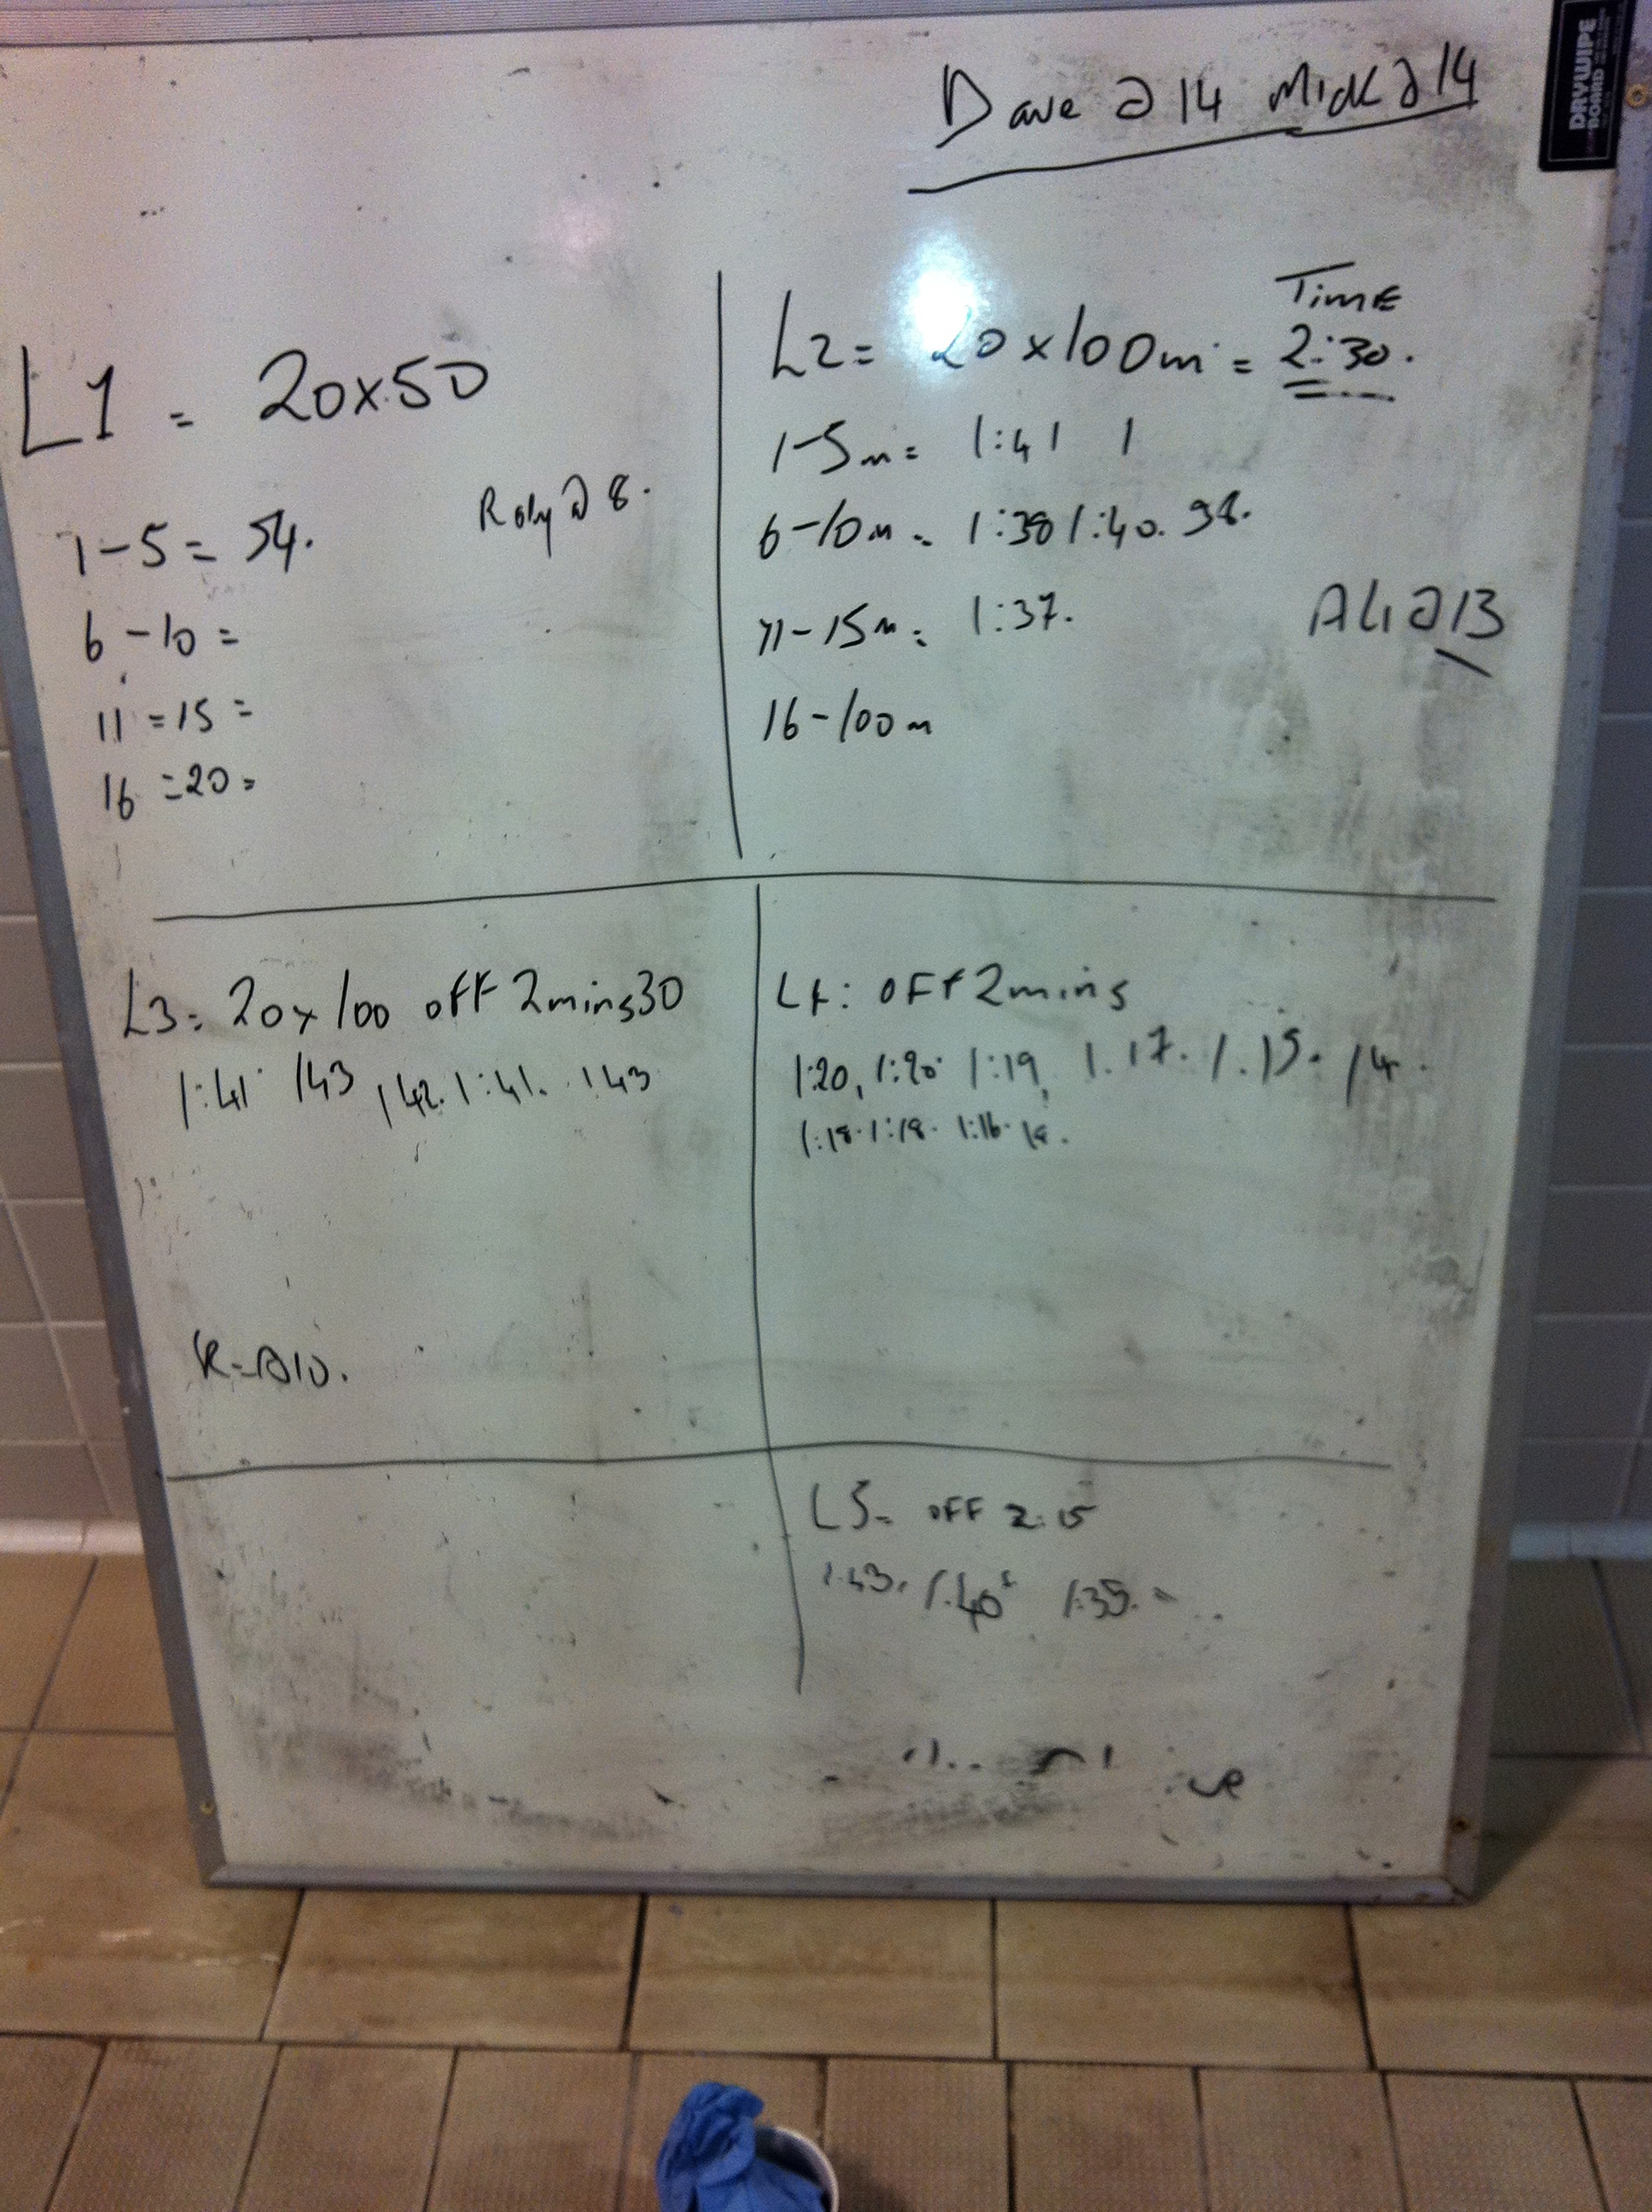 DRYWIPE
BOARD
Dave @ 14 Mick @ 14
L1 = 20x50
1-5 = 54.
@ 8.
6-10 =
11=15 =
16=20=
Time
L2= 20x100m = 2:30.
1-5m= 1:41 1
6-10m= 1:38 1:40. 38.
11-15m= 1:37.
Ali @13
16-100m
L3= 20x100 off 2mins30
1:41 143 142. 1:41. 143
K=@10.
L4: OFF 2mins
1:20, 1:20 1:19, 1.17. 1.15. 14.
1:18. 1:18. 1:16. 18.
L5= OFF 2:15
1:43. 1:40 1:39.